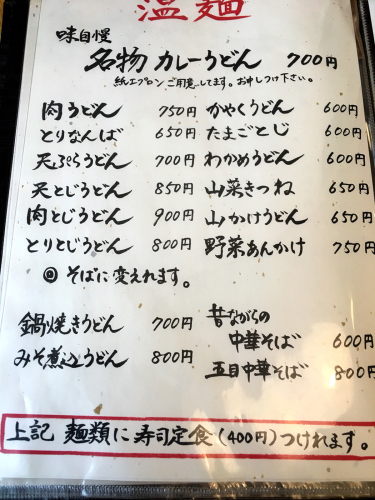 温麺
味自慢
名物 カレーうどん 700円
紙エプロンご用意してます。お申しつけ下さい。
肉うどん 750円
とりなんば 650円
天ぷらうどん 700円
天とじうどん 850円
肉とじうどん 900円
とりとじうどん 800円
◎ そばに変えれます。
鍋焼きうどん 700円
みそ煮込うどん 800円
かやくうどん 600円
たまごとじ 600円
わかめうどん 600円
山菜きつね 650円
山かけうどん 650円
野菜あんかけ 750円
昔ながらの
中華そば 600円
五目中華そば 800円
上記 麺類に寿司定食(400円)つけれます。